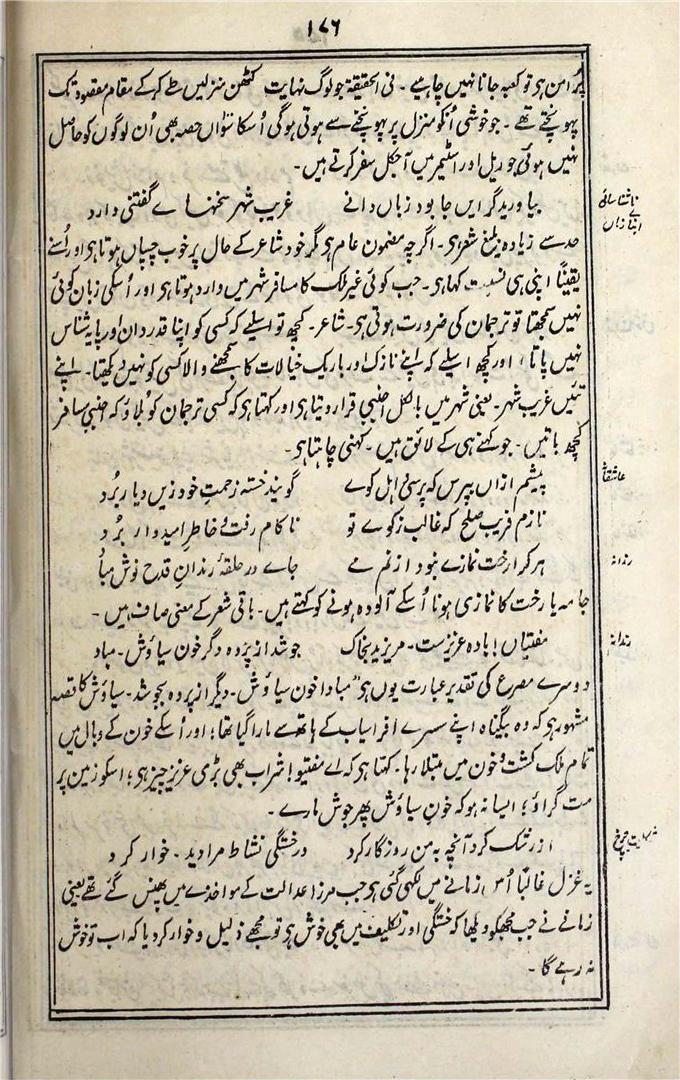 ۱۷۶
پُر امن ہو تو کعبہ جانا نہیں چاہیے ۔ فی الحقیقۃ جو لوگ نہایت کٹھن منزلیں طے کر کے مقام مقصود تک
پہونچتے تھے ۔ جو خوشی اُنکو منزل پر پہونچنے سے ہوتی ہوگی اُسکا سَواں حصہ بھی اُن لوگوں کو حاصل
نہیں ہوئی جو ریل اور اسٹیمر میں آجکل سفر کرتے ہیں ۔
بیا ورید گر ایں جا بود زباں دانے غریب شہر سخنہاے گفتنی دارد
ناشناسائی
ابنائے زماں
حد سے زیادہ بلیغ شعر ہو ۔ اگرچہ مضمون عام ہو مگر خود شاعر کے حال پر خوب چسپاں ہوتا ہو اور اُسنے
یقیناً اپنی ہی نسبت کہا ہو ۔ جب کوئی غیر ملک کا مسافر شہر میں وارد ہوتا ہو اور اُسکی زبان کوئی
نہیں سمجھتا تو ترجمان کی ضرورت ہوتی ہو ۔ شاعر ۔ کچھ تو اسلیے کہ کسی کو اپنا قدردان اور پایہ شناس
نہیں پاتا ، اور کچھ اسلیے کہ اپنے نازک اور باریک خیالات کا سمجھنے والا کسی کو نہیں دیکھتا ۔ اپنے
تئیں غریب شہر ۔ یعنی شہر میں بالکل اجنبی قرار دیتا ہو اور کہتا ہو کہ کسی ترجمان کو بلاؤ کہ اجنبی مسافر
کچھ باتیں ۔ جو کہنے ہی کے لائق ہیں ۔ کہنی چاہتا ہو ۔
پیشم ازاں بپرس کہ پرسی و اہل کوے گویند خستہ زحمتِ خود زیں دیار بُرد
عاشقانہ
نازم فریب صلح کہ غالب ز کوے تو ناکام رفت و خاطرِ امیدوار بُرد
ہر کرا رخت نمازے نبود از نم مے جاے در حلقۂ رندانِ قدح نوش مباد
رندانہ
جامہ یا رخت کا نمازی ہونا اُسکے آلودہ ہونے کو کہتے ہیں ۔ باقی شعر کے معنی صاف ہیں ۔
مفتیاں! بادہ عزیزست ۔ مریزید بخاک جوشد از پردہ دگر خون سیاوُش ۔ مباد
رندانہ
دوسرے مصرع کی تقدیر عبارت یوں ہو "مبادا خون سیاوُش ۔ دیگر از پردہ بجوشد ۔ سیاوُش کا قصہ
مشہور ہو کہ وہ بیگناہ اپنے سسرے افراسیاب کے ہاتھ سے مارا گیا تھا ؛ اور اُسکے خون کے وبال میں
تمام ملک کشت و خون میں مبتلا رہا ۔ کہتا ہو کہ اے مفتیو! شراب بھی بڑی عزیز چیز ہو ؛ اسکو زمین پر
مت گراؤ ؛ ایسا نہ ہو کہ خونِ سیاوُش پھر جوش مارے ۔
از رشک کرد آنچہ بہ من روزگار کرد در خستگی نشاط مرا دید ۔ خوار کرد
شکایت چرخ
یہ غزل غالباً اُس زمانے میں لکھی گئی ہو جب مرزا عدالت کے مواخذے میں پھنس گئے تھے یعنی
زمانے نے جب مجھکو دیکھا کہ خستگی اور تکلیف میں بھی خوش ہو تو مجھے ذلیل و خوار کر دیا کہ اب تو خوش
نہ رہے گا ۔